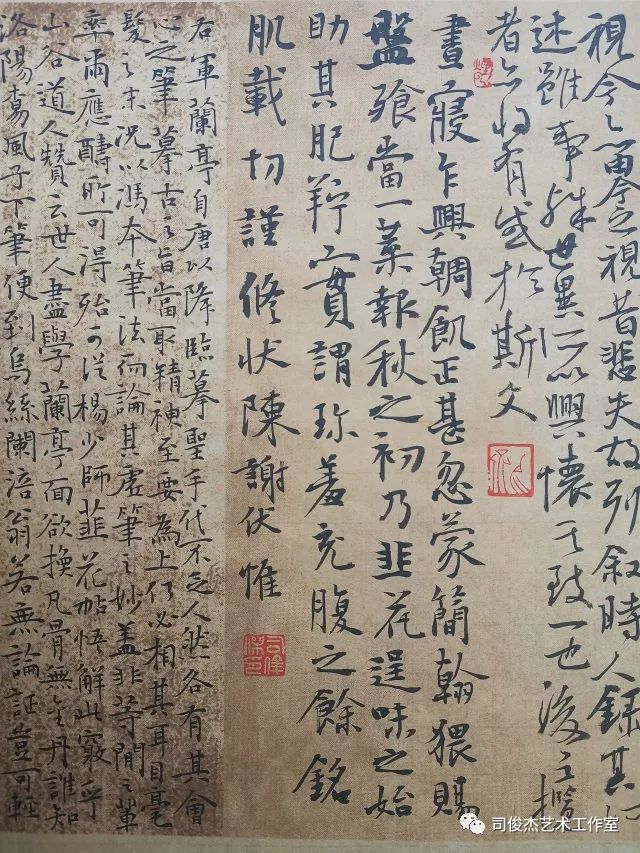 視今亦由今之視昔悲夫故列叙時人錄其所
述雖事殊世異所以興懷其致一也後之攬
者亦將有感於斯文
晝寢乍興輖飢正甚忽蒙簡翰猥賜
盤飧當一葉報秋之初乃韭花逞味之始
助其肥羜實謂珍羞充腹之餘銘
肌載切謹修狀陳謝伏惟
右軍蘭亭自唐以降臨摹聖手代不乏人然各有其會
心之筆摹古之旨當取精神至要為上仍必相其耳目毫
髮之末況以馮本筆法而論其虛筆之妙蓋非等閒之輩
率爾應酬所可得殆可從楊少師韭花帖悟解此竅乎
山谷道人贊云世人盡學蘭亭面欲換凡骨無金丹誰知
洛陽楊風子下筆便到烏絲闌涪翁若無論証豈可輕
司俊杰艺术工作室